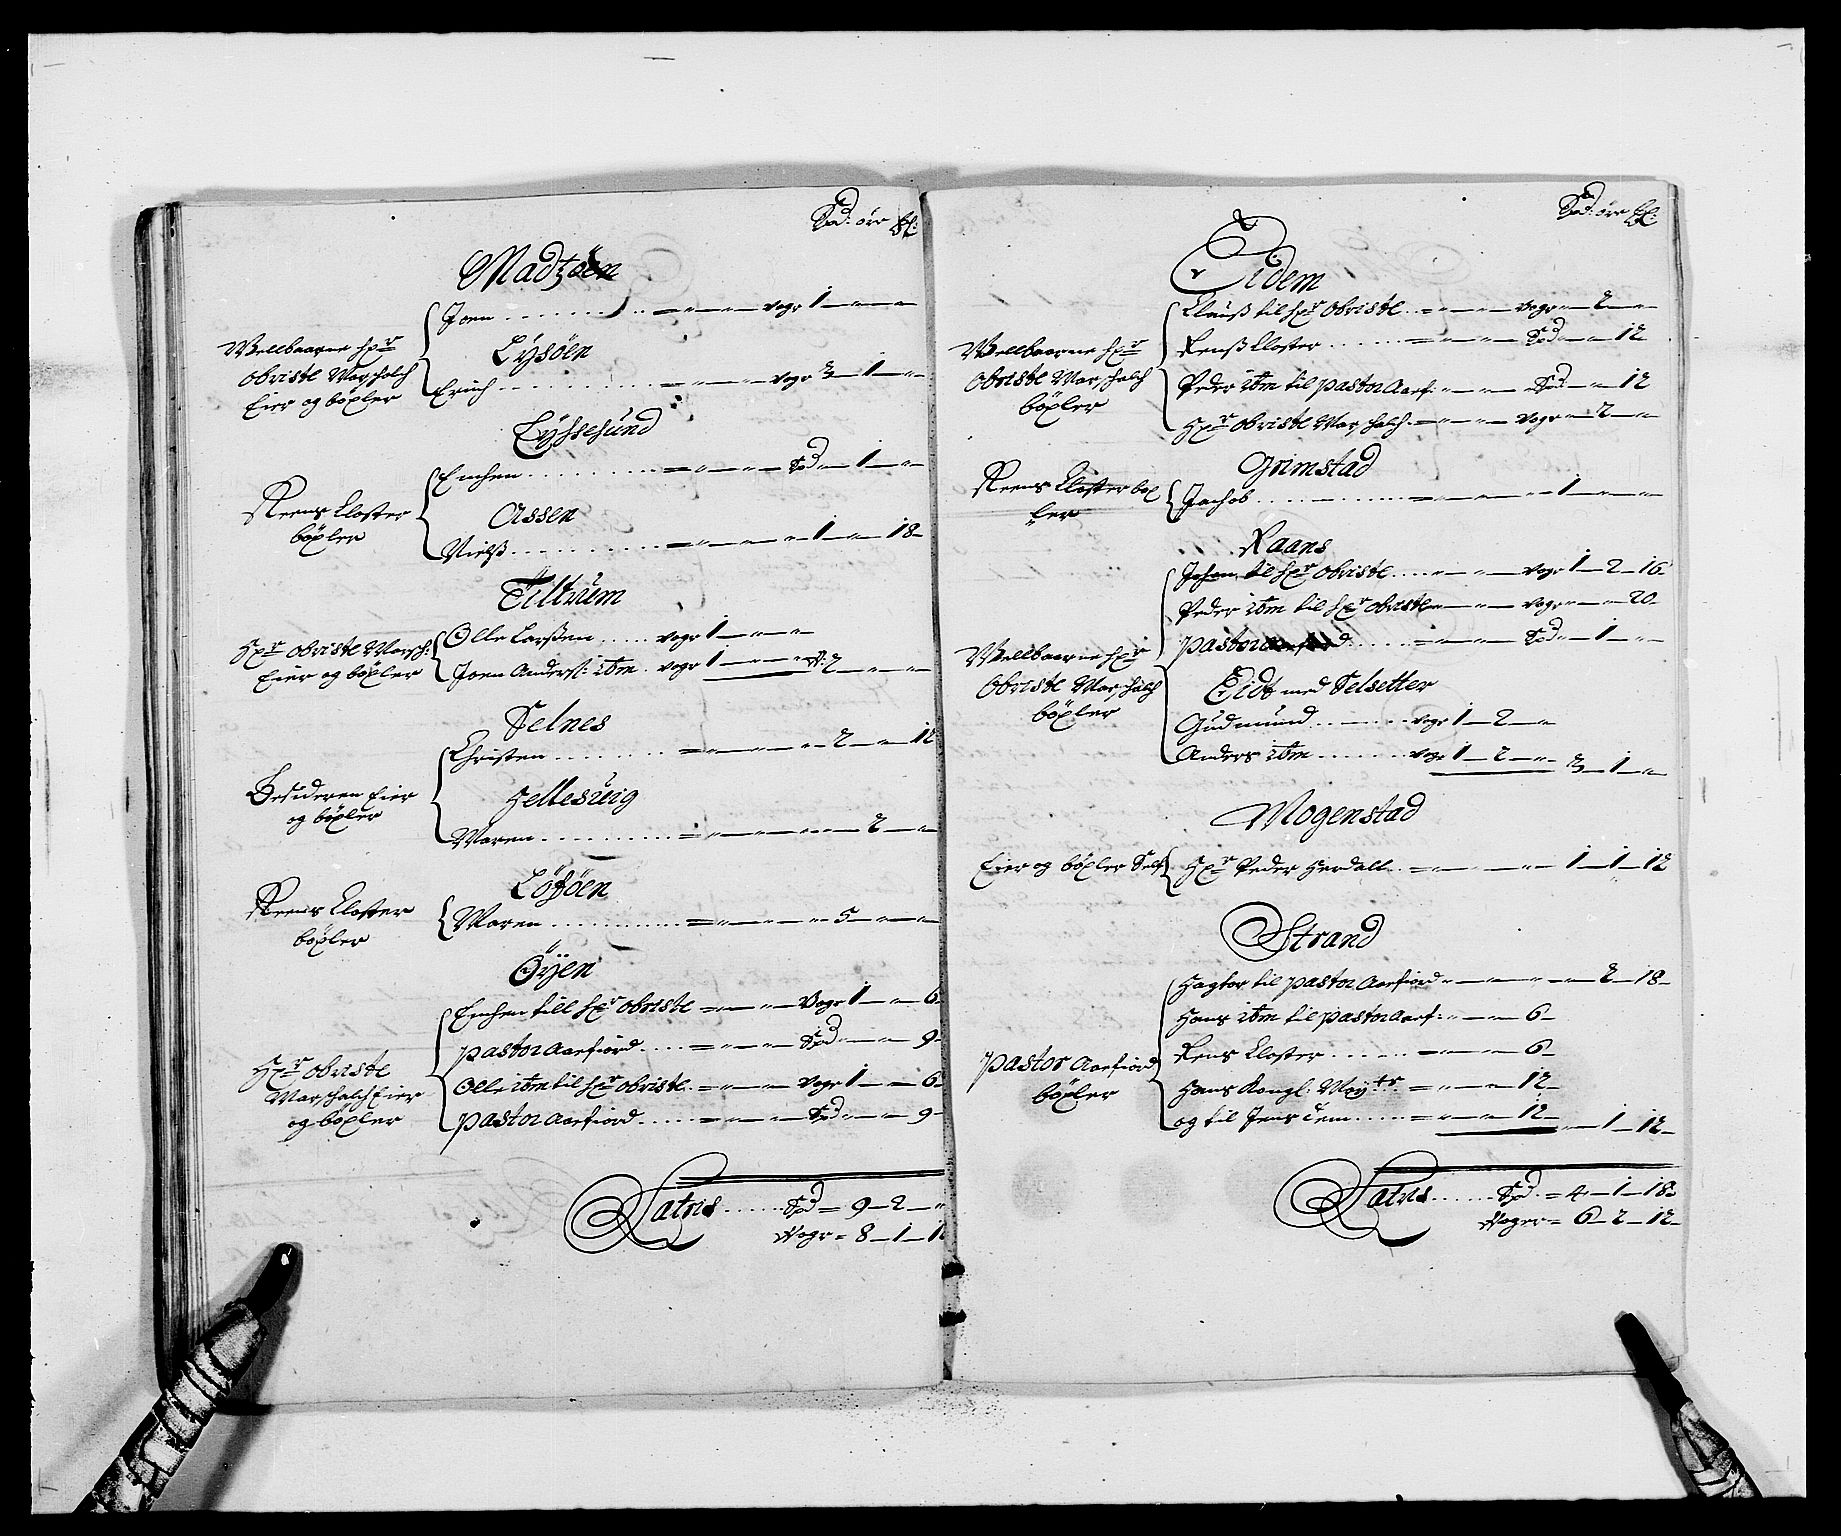 Spd: øre ß:
Madtzøen
Joen . . . . . . . . = – " – " – vogr 1 – " – "
Wellbaarne Hr
Obriste Marschalch
Eier og böxler
Lysøen
Erich . . . . . . . . . = – " – " – vogr 2 – 1 – "
Lyssesund
Reens Closter
böxler
Emhen . . . . . . . . . = – " – " – Spd – 1 – "
Assen
Nielß . . . . . . . . . = – " – " – " – 1 – " – 18 –
Tiltrum
Hr Obriste Marsch:
Eier og böxler
Olle Larßen . . . . . vogr 1 – " – "
Joen Anderß: itm . vogr 1 – " – " 2 – " – "
Selnes
Besideren Eier
og böxler
Christen . . . . . . . = – " – " – " – 2 – " – 12
Hellesuig
Maren . . . . . . . . . = – " – " – " – 2 – "
Löföen
Reens Closter
böxler
Maren . . . . . . . . . = – " – " – " – 5 – " – "
Øyen
Hr Obriste
Marschalch Eier
og böxler
Emhen till Hr Obriste = – " – Vogr 1 – " – 6
pastor Aarfiord . . . . = – " – Spd – " – 9 –
Olle itm til Hr Obriste . = – " – Vogr 1 – " – 6
pastor Aarfiord . . . . . = – " – Spd – " – 9 –
Latus . . . . . . Spd = 9 – 2 – "
Wogr = 8 – 1 – 1
Spd: øre ß:
Eidem
Wellbaarne Hr
Obriste Marschalch
böxler
Clauß til Hr Obriste . . = – " – " – vogr – 2 – " –
Renß Closter . . . . . . . = – " – " – Spd – " – 12
Peder itm til pastor Aarf: – " – " – Spd – " – 12
Hr Obriste Marschalch . = – " – " – vogr – 2 – " –
Grimstad
Reens Closter böx
ler
Jachob . . . . . . . . . = – " – " – " – 1 – " –
Raans
Wellbaarne Hr
Obriste Marschalch
böxler
Johan til Hr Obriste . . . . – " – " – vogr 1 – 2 – 16
Peder itm til Hr Obriste – " – " – vogr – " – 20 –
pastor Aarfiord . . . . . = – " – " – Spd – 1 – "
Eidt med Selsetter
Gudmund . . . . . . . . vogr 1 – 2 – "
Anders itm . . . . . . . vogr 1 – 2 – " – 3 – 1 – "
Mogenstad
Eier og böxler Self
Hr Peder Herdall . . = – " – " – " – 1 – 1 – 12
Strand
pastor Aarfiord
böxler
Hagtor til pastor Aarfiord – " – " – " – 2 – 18 –
Hans itm til pastor Aarf: – " – " – 6 –
Rens Closter . . . . . . . – " – " – 6 –
Hans Kongl: Mayts = – " – " – 12 –
og til Jens Dem . . . . = – " – 12 – " – 1 – 12 –
Latus . . . . . . Spd = 4 – 1 – 18
Wogr = 6 – 2 – 12 –